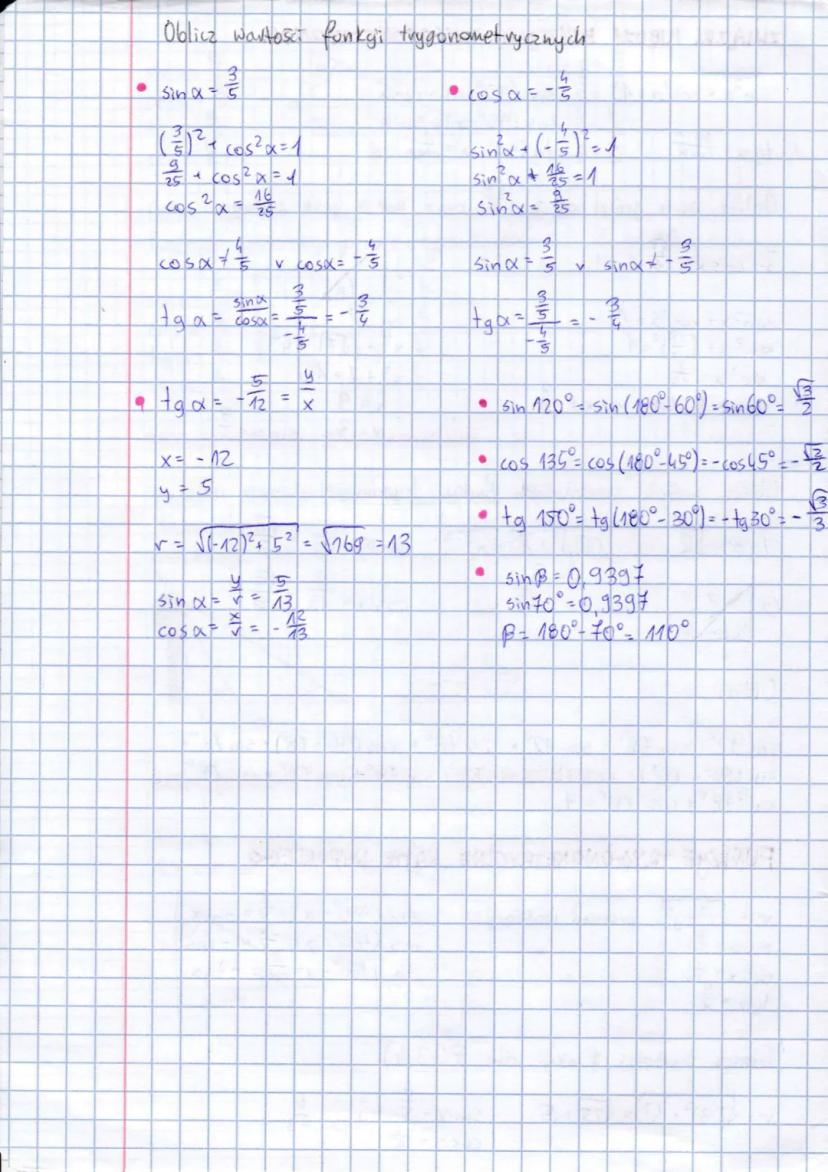 Oblicz wartości funkcji trygonometrycznych
• sin α = 3/5
(3/5)² + cos²α = 1
9/25 + cos²α = 1
cos²α = 16/25
cos α ≠ 4/5 v cos α = -4/5
tg α = sin α/cos α = (3/5)/(-4/5) = -3/4
• cos α = -4/5
sin²α + (-4/5)² = 1
sin²α + 16/25 = 1
sin²α = 9/25
sin α = 3/5 v sin α ≠ -3/5
tg α = (3/5)/(-4/5) = -3/4
• tg α = -5/12 = y/x
x = -12
y = 5
r = √((-12)² + 5²) = √169 = 13
sin α = y/r = 5/13
cos α = x/r = -12/13
• sin 120° = sin (180° - 60°) = sin 60° = √3/2
• cos 135° = cos (180° - 45°) = -cos 45° = -√2/2
• tg 150° = tg (180° - 30°) = -tg 30° = -√3/3
• sin β = 0,9397
sin 70° = 0,9397
β = 180° - 70° = 110°